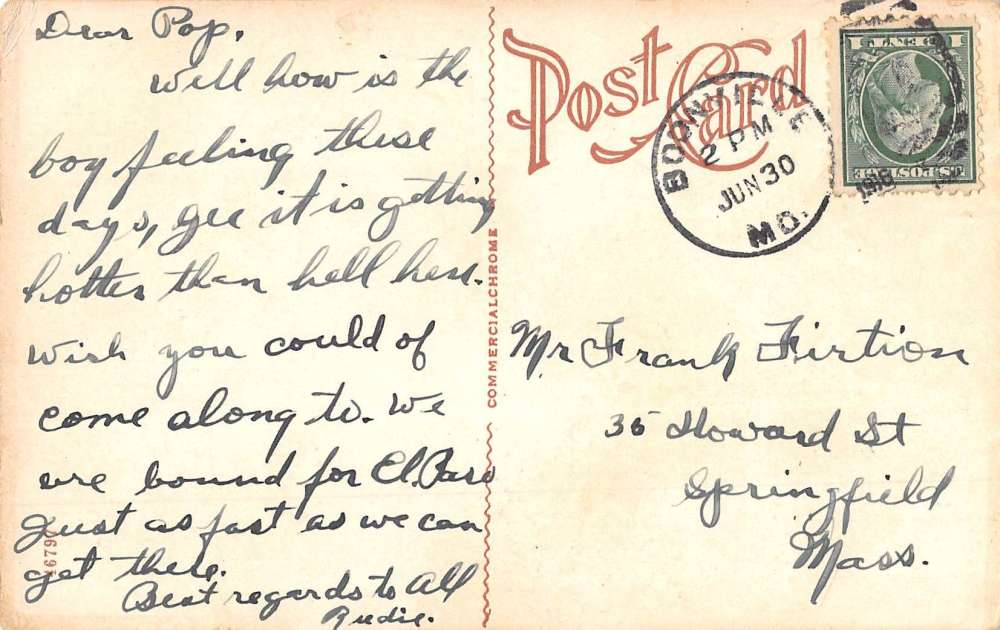 Dear Pop,
Well how is the
boy feeling these
days, gee it is getting
hotter than hell here.
Wish you could of
come along to. We
are bound for El Paso
Just as fast as we can
get there.
Best regards to All
Rudie.
COMMERCIALCHROME
Post Card
BOONVILLE
2 PM
JUN 30
MO.
1916
1 CENT 1
U.S. POSTAGE
Mr Frank Firtion
35 Howard St
Springfield
Mass.